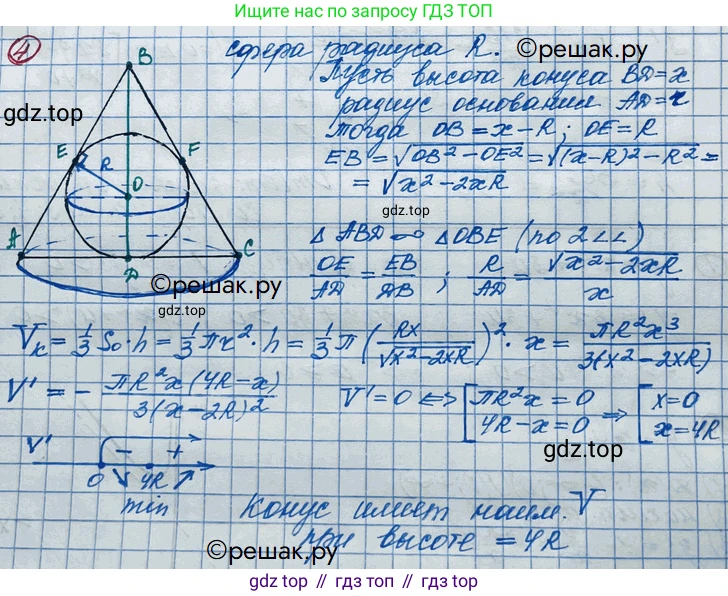 Ищите нас по запросу ГДЗ ТОП
4
сфера радиуса R.
©решак.ру
Пусть высота конуса BD=x
gdz.top
радиус основания AD=r
тогда OB=x-R; OE=R
EB=√OB²-OE²=√(x-R)²-R²=
=√x²-2xR
gdz.top
B
E
F
R
O
A
D
C
©решак.ру
△ABD ∾ △OBE (по 2∠∠)
OE/AD = EB/DB ; R/AD = √x²-2xR/x
Vк=1/3 Sо·h=1/3 πr²·h=1/3 π(Rx/√x²-2xR)²·x=πR²x³/3(x²-2xR)
V'=-πR²x(4R-x)/3(x-2R)²
V'=0 <=> [πR²x=0 4R-x=0 => [x=0 x=4R
gdz.top
V'
- +
0 4R
min
Конус имеет наим. V
при высоте =4R
©решак.ру
gdz.top // гдз.топ // gdz.top